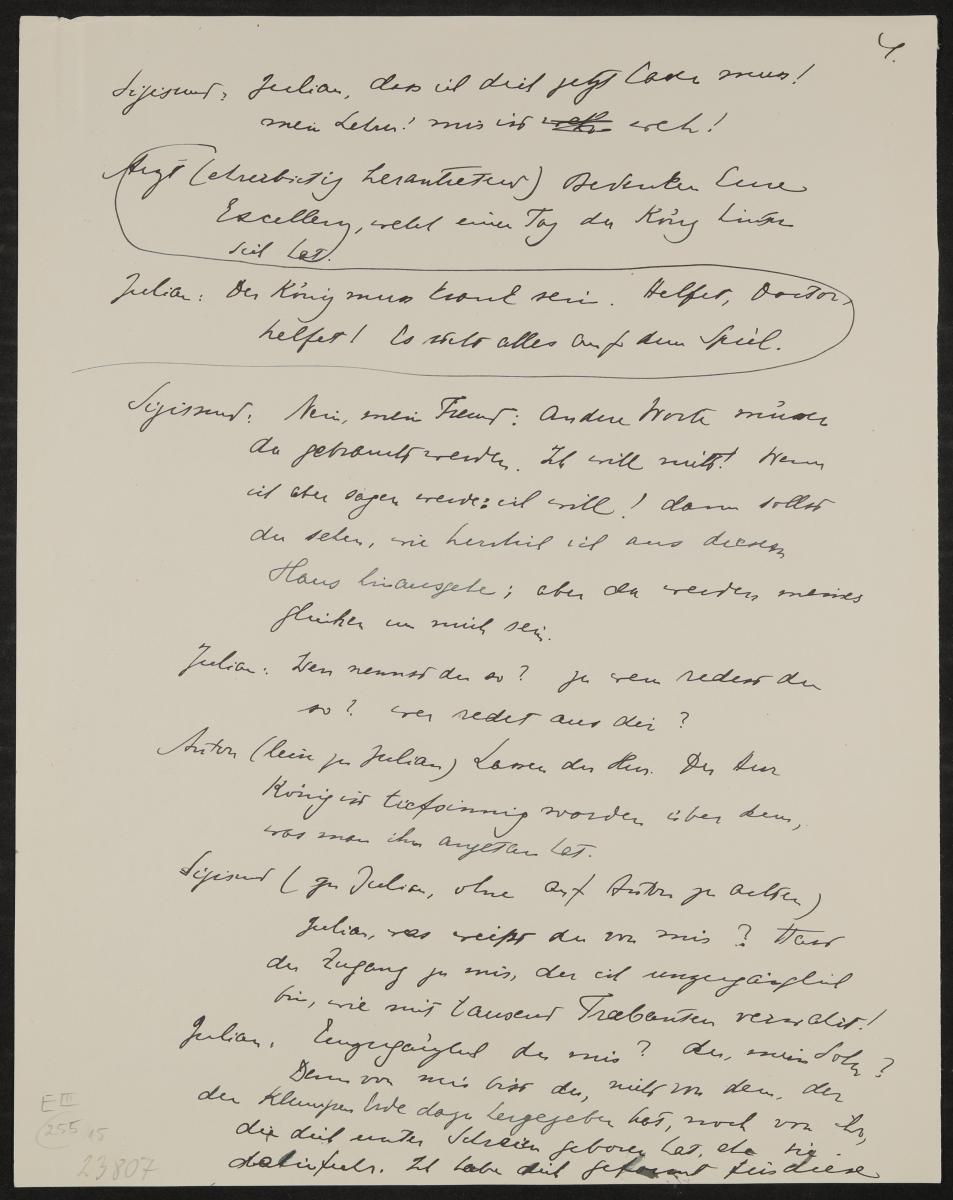 4.
Sigismund: Julian, dass ich dich jetzt lassen muss!
mein Lehrer! mir ist weh!
Arzt (ehrerbietig herantretend) Bedenken Eure
Excellenz, welch einen Tag der König hinter
sich hat.
Julian: Der König muss krank sein. Helfet, Doctor,
helfet! Es steht alles auf dem Spiel.
Sigismund: Nein, mein Freund: andere Worte müssen
da gebraucht werden. Ich will nicht! Wenn
ich aber sagen werde: ich will! dann sollst
du sehen, wie herrlich ich aus diesem
Haus hinausgehe; aber da werden meines
gleichen um mich sein.
Julian: Wen nennst du so? zu wem redest du
so? wer redet aus dir?
Anton (leise zu Julian) Lassen der Herr. Der Herr
König ist tiefsinnig worden über dem,
was man ihm angetan hat.
Sigismund (zu Julian, ohne auf Anton zu achten)
Julian, was weisst du von mir? Hast
du Zugang zu mir, der ich unzugänglich
bin, wie mit tausend Trabanten verwahrt!
Julian: Unzugänglich du mir? du, mein Sohn?
Denn von mir bist du, nicht von dem, der
den Klumpen Erde dazu hergegeben hat, noch von ihr,
die dich unter Schreien geboren hat, ehe sie
dahinfuhr. Ich habe dich geformt für diese
E III
255 15
23807